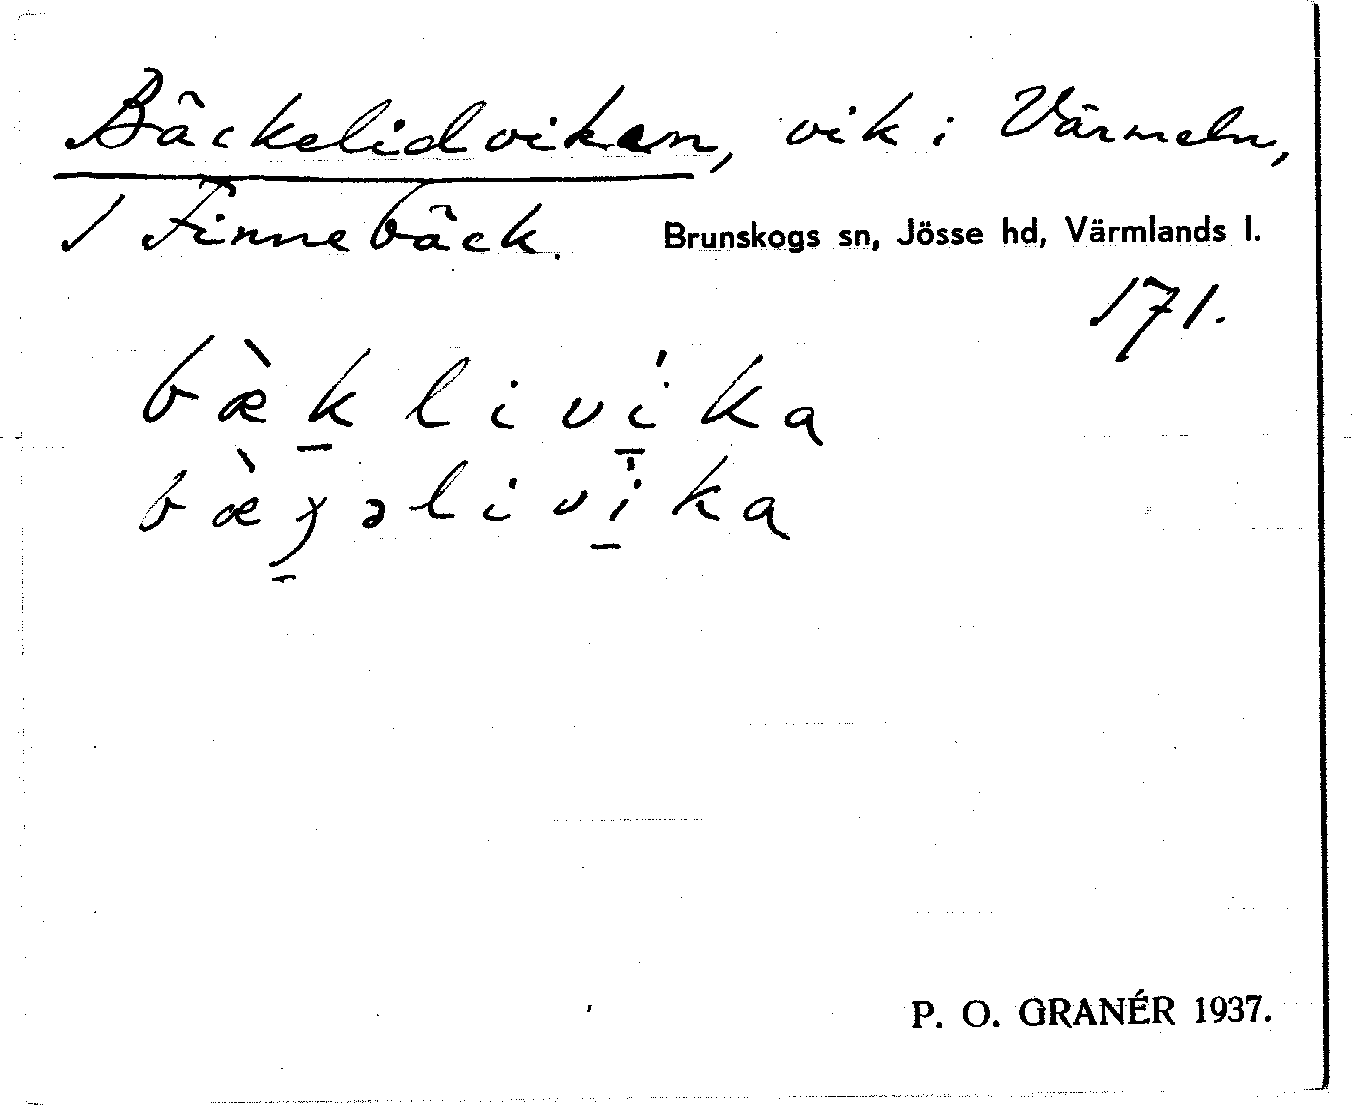 Bäckelidviken, vik i Värmeln,
1 Finnebäck. Brunskogs sn, Jösse hd, Värmlands l.
171.
bæ̀k̠livi̠̍ka
bæ̀ꝫ̠əlivi̠̍ka
P. O. GRANÉR 1937.